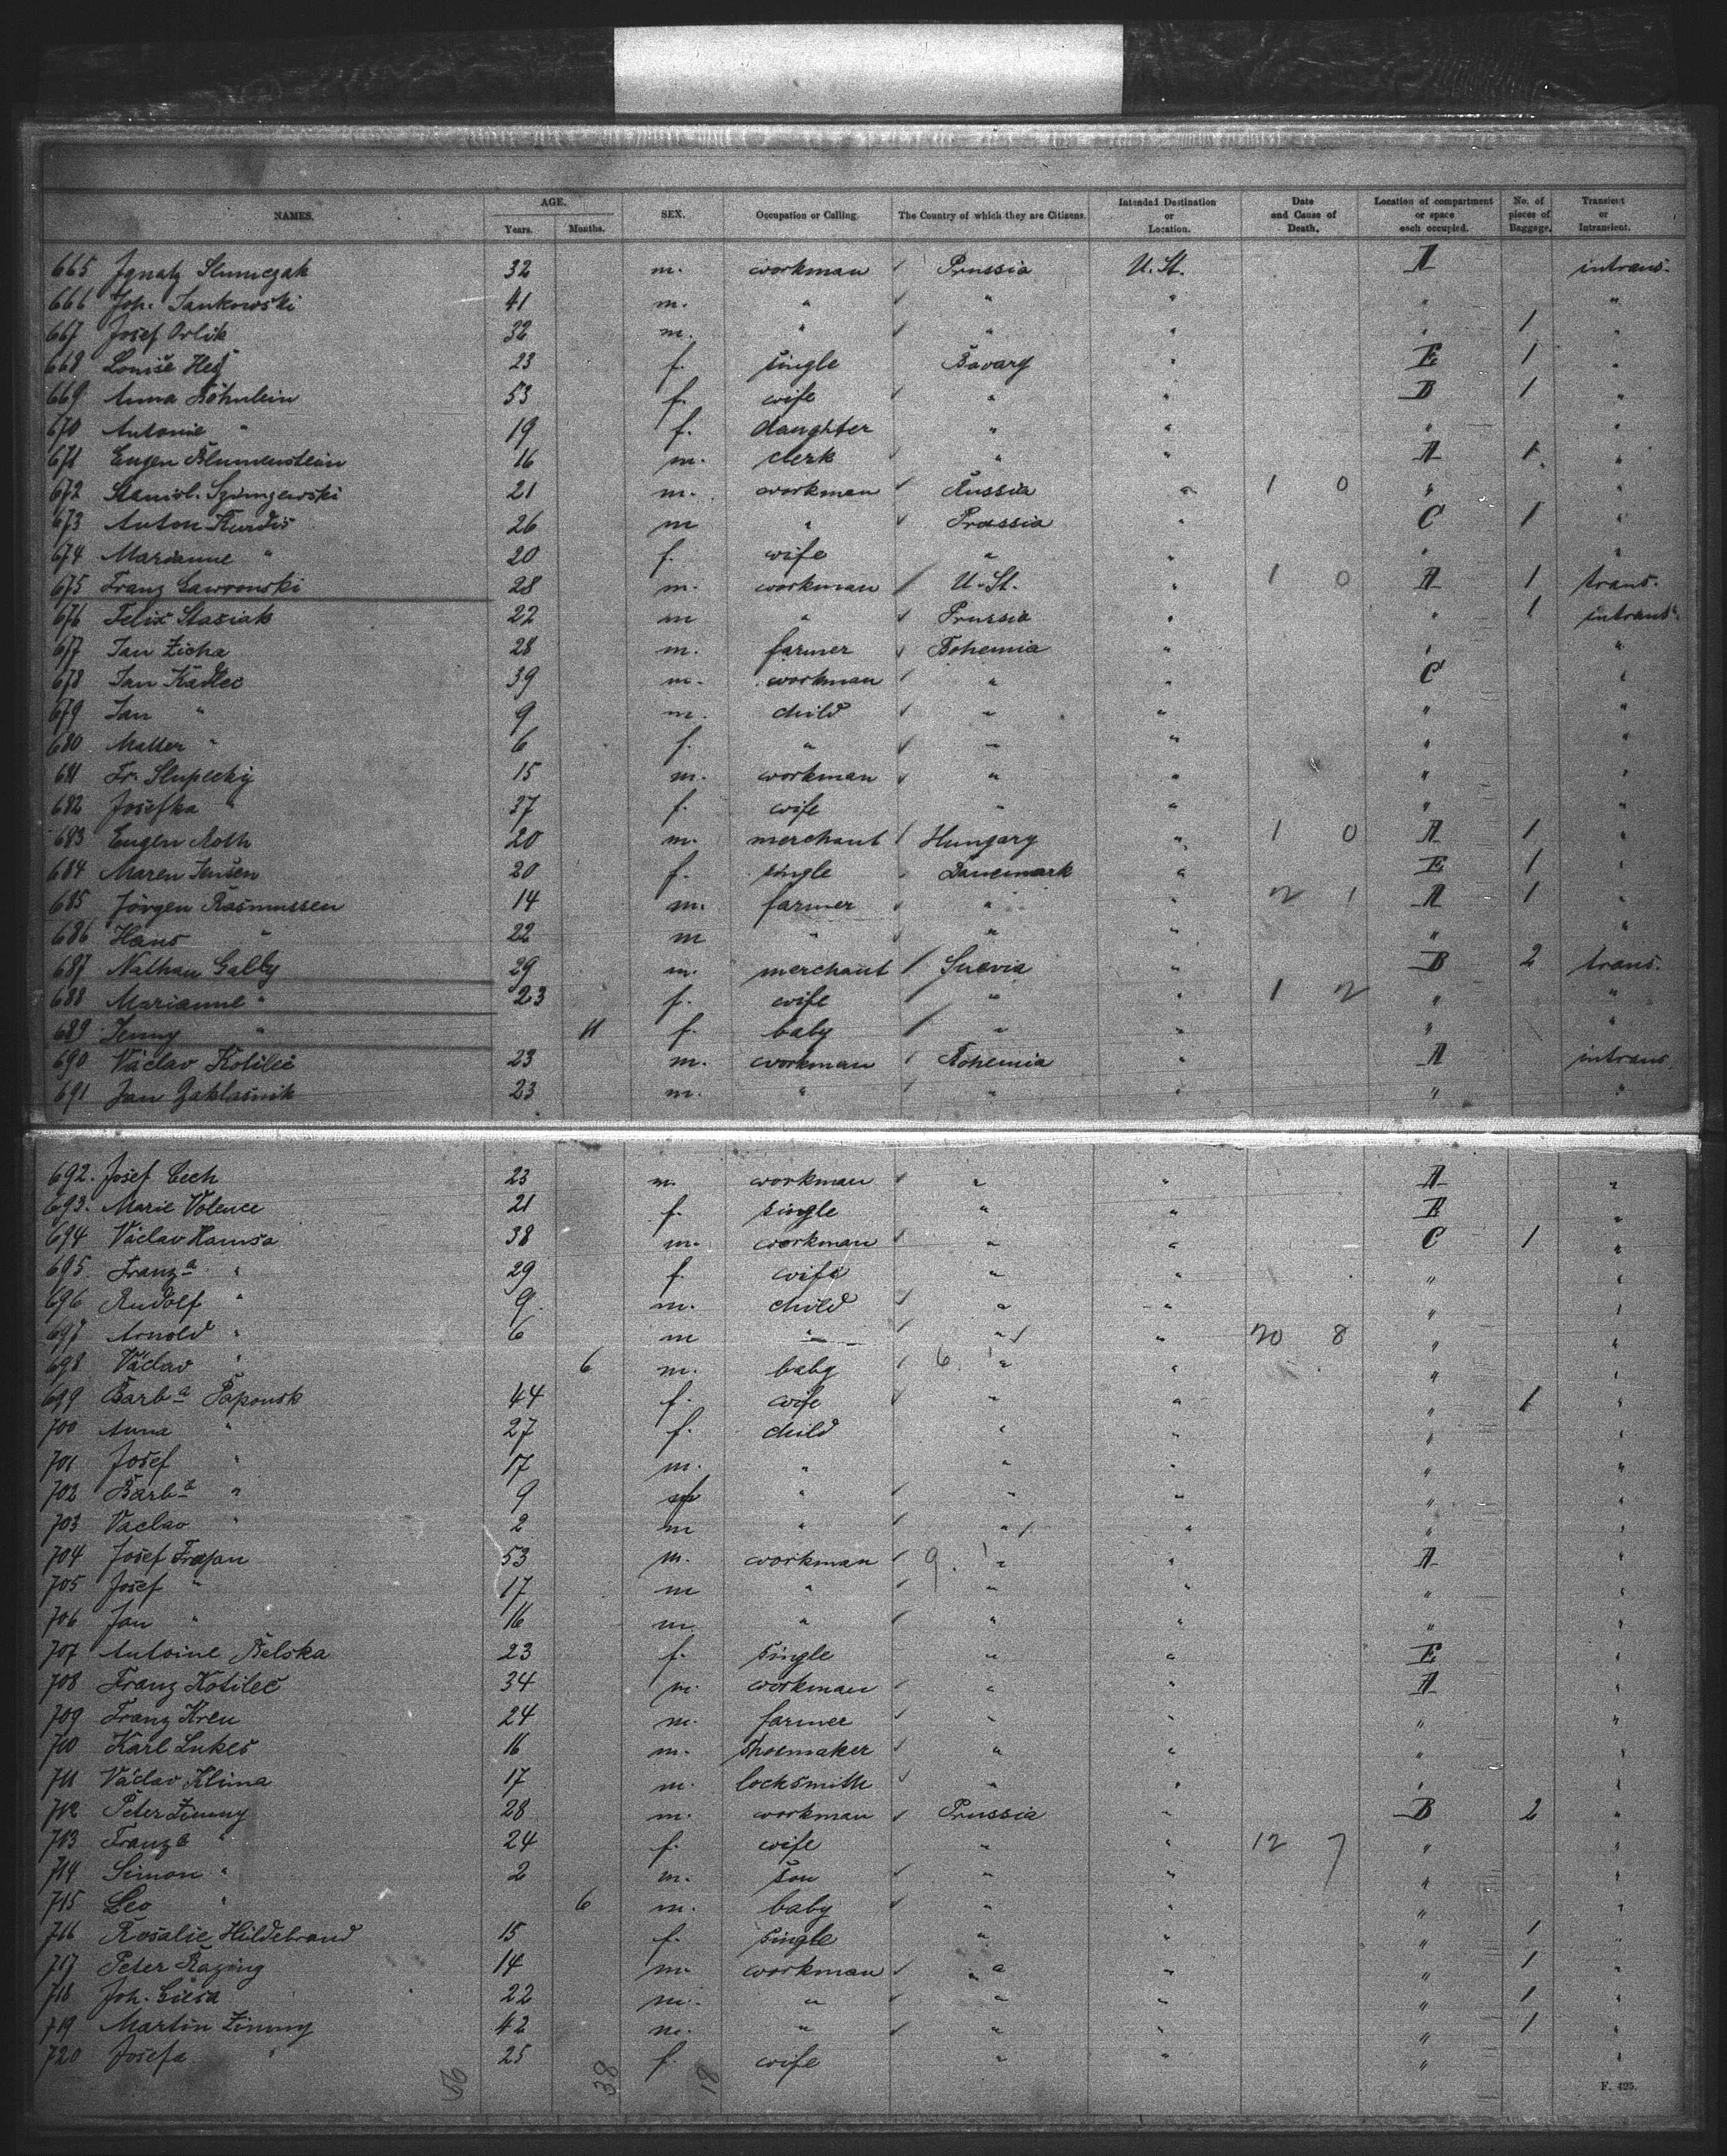 NAMES. AGE. SEX. Occupation or Calling. The Country of which they are Citizens. Intended Destination or Location. Date and Cause of Death. Location of compartment or space each occupied. No. of pieces of Baggage. Transient or Intransient.
Years. Months.
665 Ignatz 32 m. workman Prussia U. St. A intrans.
666 Joh. Jankowski 41 m. " " " " "
667 Josef Orlik 32 m. " " " " 1 "
668 Louise 23 f. single Bavary " E 1 "
669 Anna Böhnlein 53 f. wife " " B 1 "
670 Antonie " 19 f. daughter " " " "
671 Eugen Blumenstein 16 m. clerk " " A 1 "
672 Stanisl. 21 m. workman Russia " 1 0 " "
673 Anton Kurdis 26 m " Prussia " C 1 "
674 Marianne " 20 f. wife " " " "
675 Franz Gawronski 28 m. workman U. St. " 1 0 A 1 trans.
676 Felix Stasiak 22 m " Prussia " " 1 intrans.
677 Jan Zicha 28 m. farmer Bohemia " " "
678 Jan Kadlec 39 m. workman " " C "
679 Jan " 9 m. child " " " "
680 " 6 f. " " " " "
681 Fr. Slupecky 15 m. workman " " " "
682 Josefka " 37 f. wife " " " "
683 Eugen Roth 20 m. merchant Hungary " 1 0 A 1 "
684 Maren Jensen 20 f. single Danemark " E 1 "
685 Jörgen Rasmussen 14 m. farmer " " 2 1 A 1 "
686 Hans " 22 m " " " " "
687 Nathan Gally 29 m. merchant Suevia " B 2 trans.
688 Marianne " 23 f. wife " " 1 2 " "
689 Jenny " 11 f. baby " " " "
690 Václav Kotilec 23 m. workman Bohemia " A intrans.
691 Jan Zaklasnik 23 m. " " " " "
692. Josef Cech 23 m. workman " " A "
693. Marie Volence 21 f. single " " E "
694 Václav Hamsa 38 m. workman " " C 1 "
695 Franza " 29 f. wife " " " "
696 Rudolf " 9 m. child " " " "
697 Arnold " 6 m " " " 20 8 " "
698 Václav " 6 m. baby 6 " " " "
699 Barba Paponsk 44 f. wife " " " 1 "
700 Anna " 27 f. child " " " "
701 Josef " 17 m. " " " " "
702 Barba " 9 " " " " "
703 Vaclav " 2 m " " " " "
704 Josef Trajan 53 m. workman 9 " " A "
705 Josef " 17 m " " " " "
706 Jan " 16 m " " " " "
707 Antoine Belska 23 f. single " " E "
708 Franz Kotilec 34 m. workman " " A "
709 Franz Kren 24 m. farmer " " " "
710 Karl Lukes 16 m. shoemaker " " " "
711 Václav Klima 17 m. locksmith " " " "
712 Peter Zimny 28 m. workman Prussia " B 2 "
713 Franza " 24 f. wife " " 12 7 " "
714 Simon " 2 m. son " " " "
715 Leo " 6 m. baby " " " "
716 Rosalie Hildebrand 15 f. single " " " 1 "
717 Peter Razing 14 m. workman " " " 1 "
718 Joh. 22 m. " " " " 1 "
719 Martin Zimny 42 m. " " " " 1 "
720 Josefa " 25 f. wife " " " "
56 38 18
F. 425.